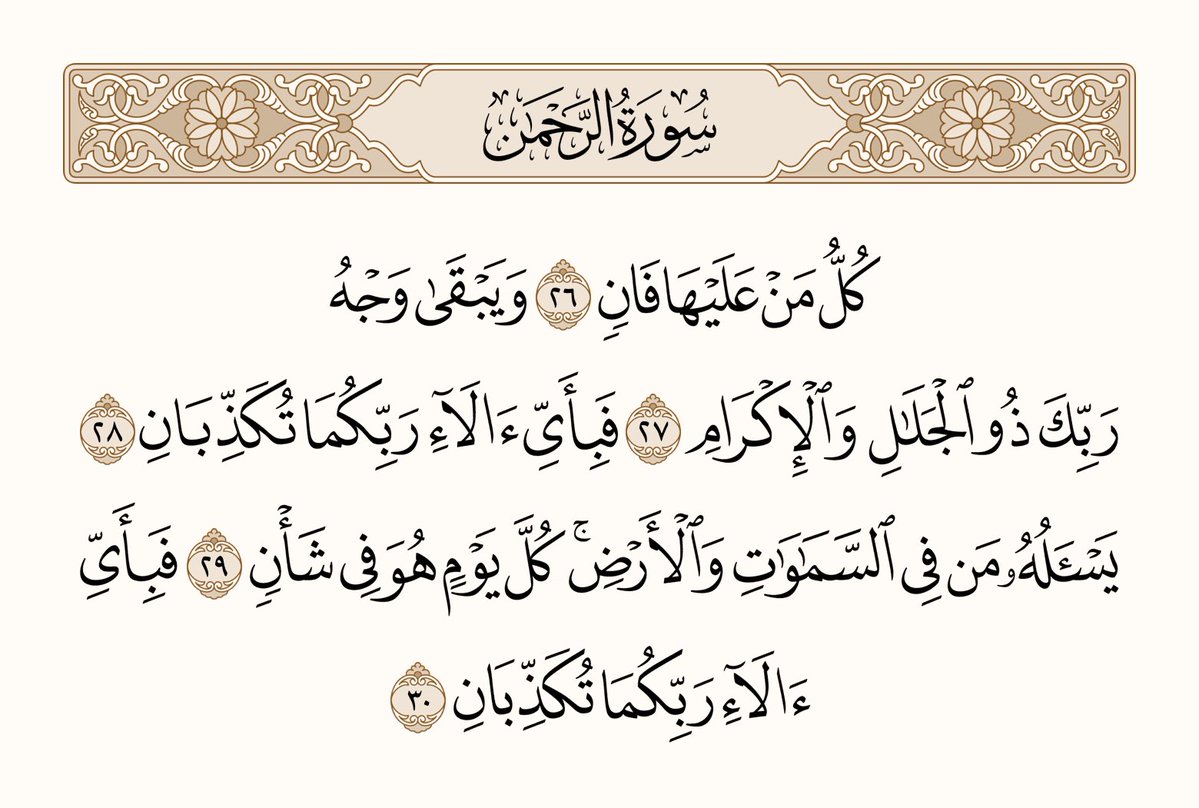 سُورَةُ الرَّحۡمَٰن
كُلُّ مَنۡ عَلَيۡهَا فَانٖ ٢٦ وَيَبۡقَىٰ وَجۡهُ
رَبِّكَ ذُو ٱلۡجَلَٰلِ وَٱلۡإِكۡرَامِ ٢٧ فَبِأَيِّ ءَالَآءِ رَبِّكُمَا تُكَذِّبَانِ ٢٨
يَسۡـَٔلُهُۥ مَن فِي ٱلسَّمَٰوَٰتِ وَٱلۡأَرۡضِۚ كُلَّ يَوۡمٍ هُوَ فِي شَأۡنٖ ٢٩ فَبِأَيِّ
ءَالَآءِ رَبِّكُمَا تُكَذِّبَانِ ٣٠